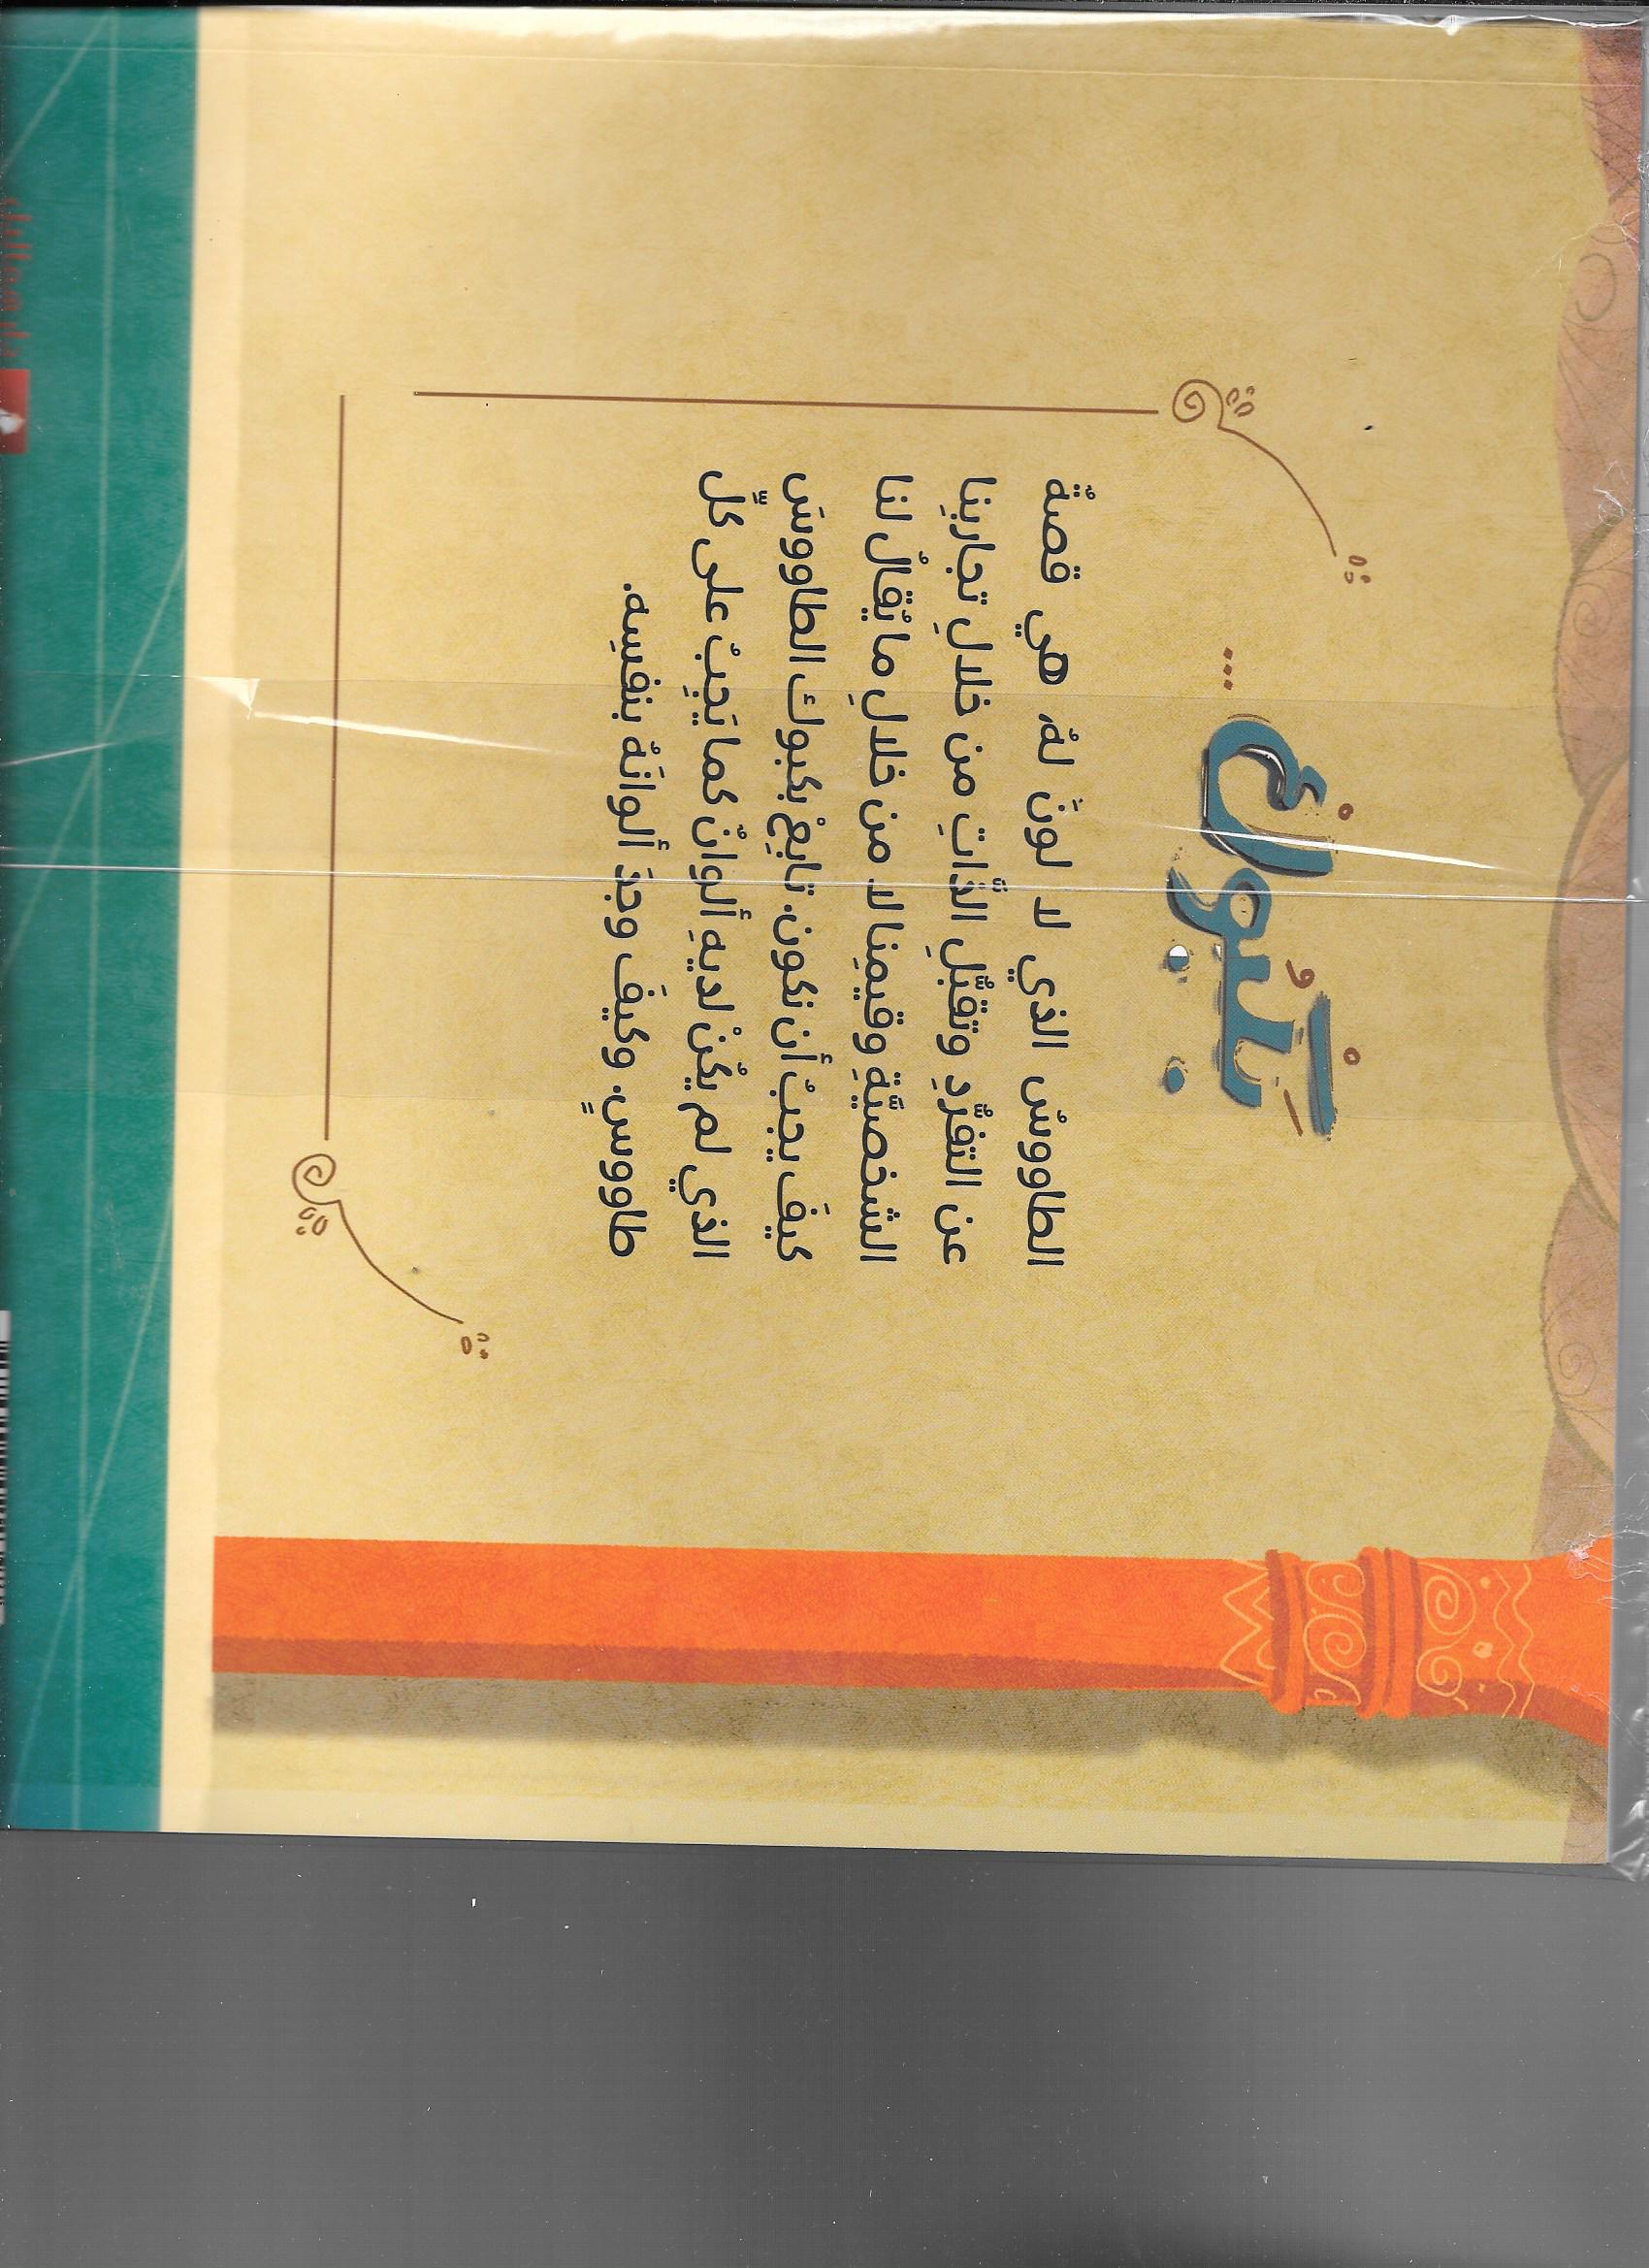 بَكْبُوكْ...
الطاووسُ الذي لا لونَ لهُ، هي قصةٌ
عن التفرّدِ وتقبّلِ الذّاتِ من خلالِ تجاربِنا
الشخصيّةِ وقيمِنا لا من خلالِ ما يُقالُ لنا
كيفَ يجبُ أن نكون. تابِعْ بكبوك الطاووسَ
الذي لم يكُنْ لديهِ ألوانٌ كما يَجِبُ على كلِّ
طاووسٍ. وكيفَ وجدَ ألوانَهُ بنفسِه.